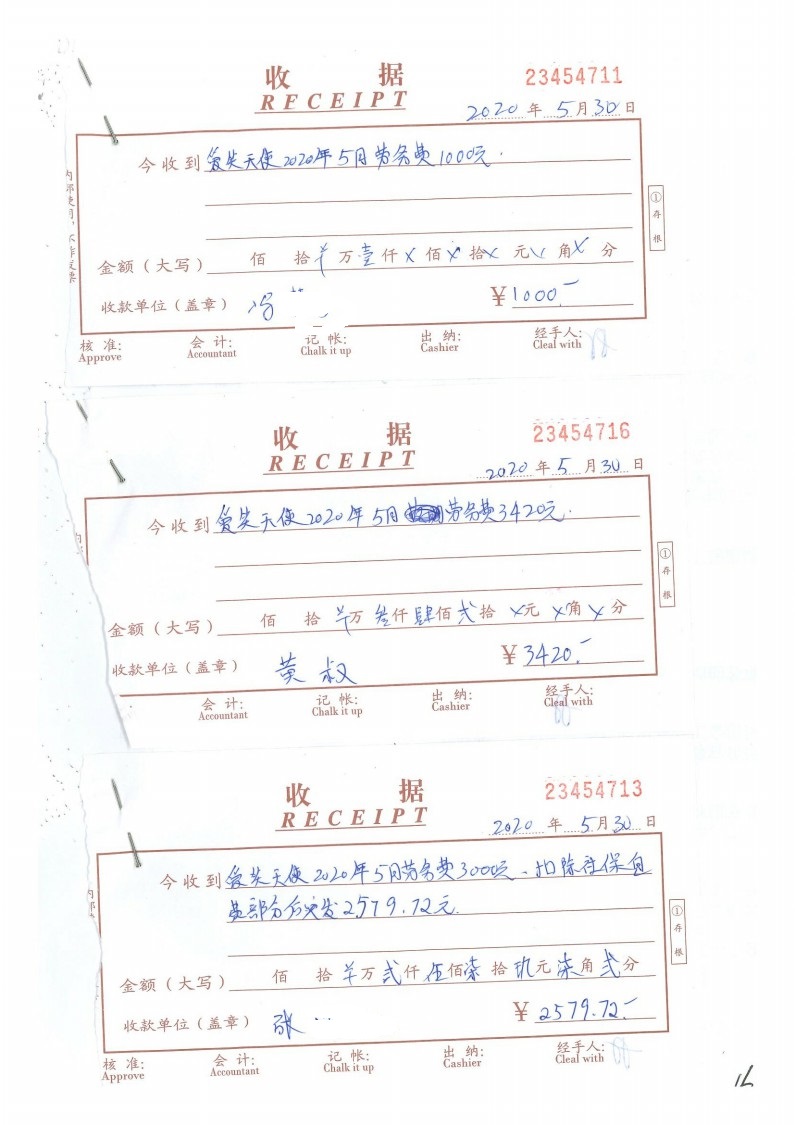 收 据
RECEIPT
23454711
2020 年 5 月 30 日
今收到 爱笑天使2020年5月劳务费1000元.
金额（大写） 佰 拾 羊 万 壹 仟 × 佰 × 拾 × 元 × 角 × 分
收款单位（盖章） 冯
¥ 1000.-
核 准: 会 计: 记 帐: 出 纳: 经手人:
Approve Accountant Chalk it up Cashier Cleal with
内部使用，不作发票
①存根
收 据
RECEIPT
23454716
2020 年 5 月 30 日
今收到 爱笑天使2020年5月劳务费3420元.
金额（大写） 佰 拾 羊 万 叁 仟 肆 佰 贰 拾 × 元 × 角 × 分
收款单位（盖章） 黄叔
¥ 3420.-
会 计: 记 帐: 出 纳: 经手人:
Accountant Chalk it up Cashier Cleal with
①存根
收 据
RECEIPT
23454713
2020 年 5 月 30 日
今收到 爱笑天使2020年5月劳务费3000元、扣除社保自
费部分后实发2579.72元.
金额（大写） 佰 拾 羊 万 贰 仟 伍 佰 柒 拾 玖 元 柒 角 贰 分
收款单位（盖章） 张
¥ 2579.72.-
核 准: 会 计: 记 帐: 出 纳: 经手人:
Approve Accountant Chalk it up Cashier Cleal with
内部
①存根